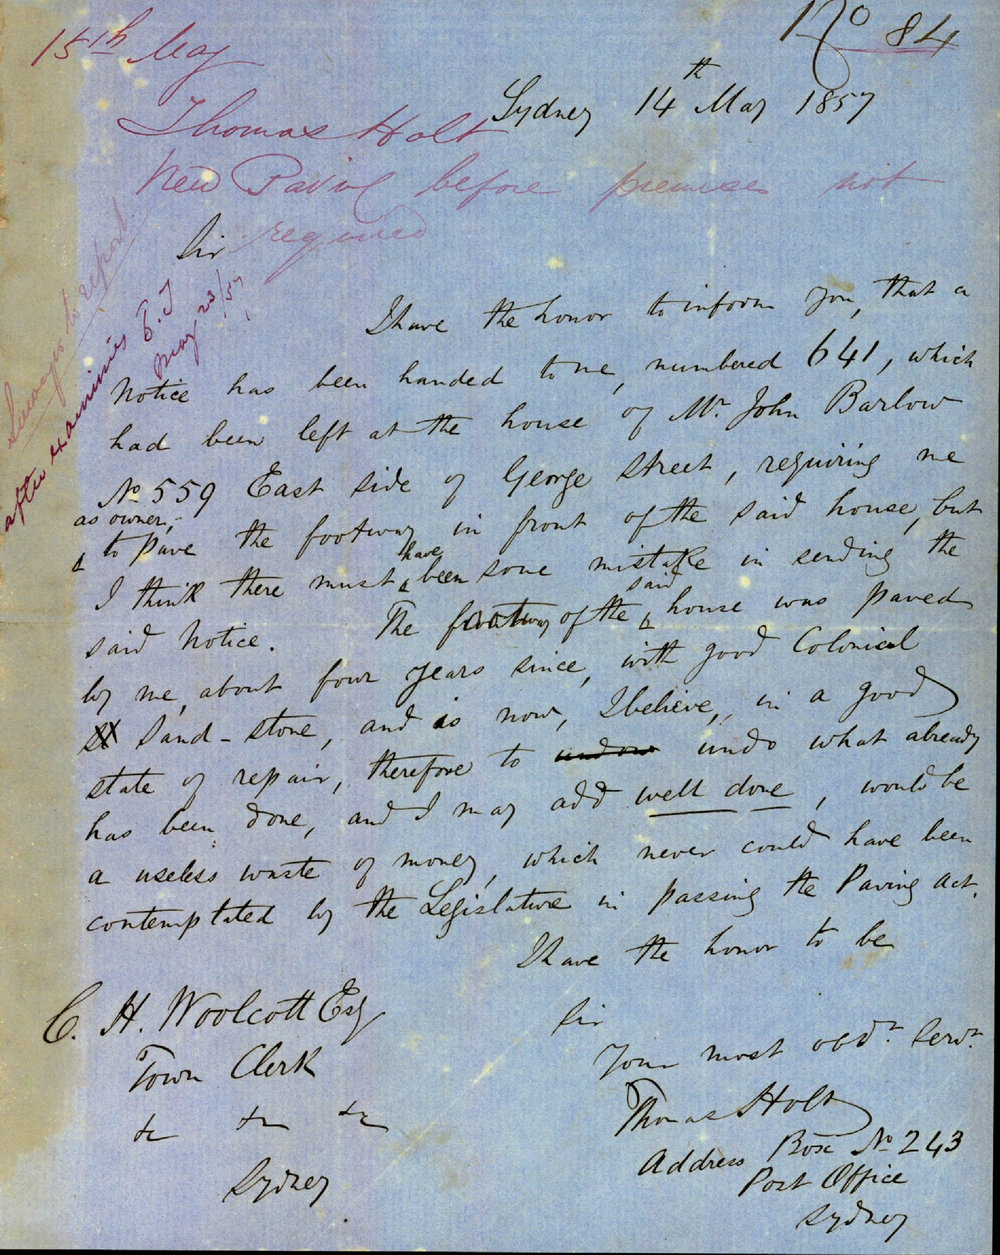 15th May
No 84
Sydney 14th May 1857
Thomas Holt
New Paving before premises not
required
Sir
Surveyor to report
after examining E.T
May 23/57
I have the honor to inform you, that a
Notice has been handed to me, numbered 641, which
had been left at the house of Mr. John Barlow
No 559 East side of George Street, requiring me
as owner,
to pave the footway in front of the said house, but
I think there must have been some mistake in sending the
said Notice. The footway of the said house was paved
by me, about four years since, with good Colonial
Sand-stone, and is now, I believe, in a good
state of repair, therefore to undo what already
has been done, and I may add well done, would be
a useless waste of money, which never could have been
contemplated by the Legislature in passing the Paving Act.
I have the honor to be
Sir
Your most obdt. Servt.
Thomas Holt
Address Box No 243
Post Office
Sydney
C. H. Woolcott Esq
Town Clerk
&c &c &c
Sydney